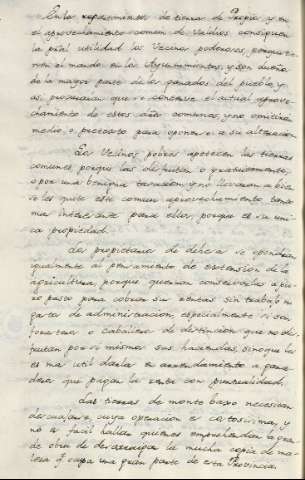 En los repartimientos de tierras de Propios y en
el aprovechamiento comun de Valdios consiguen
la pral utilidad los Vecinos poderosos, porque tie-
nen el mando en los Ayuntamientos, y son dueños
de la mayor parte de los ganados del pueblo, y
asi procuraran que se conserve el actual aprove-
chamiento de estos años comunes, y no omitiran
medio, o pretexto para oponerse a su alteracion
Los Vecinos pobres apetecen las tierras
comunes, porque las disfrutan o gratuitamente,
o por una benigna tasacion, y no llevaran a bien
se les quite este comun aprovechamiento tanto
mas interesante para ellos, porque es su uni-
ca propiedad.
Los propietarios de dehesas se opondrian
igualmente al pensamiento de extension de la
agricultura, porque querran conservarlas a pu-
ro pasto para cobrar sus rentas sin trabajo ni
gastos de administracion, especialmente si son
forasteros o caballeros de distincion que no dis-
frutan por si mismos sus haciendas, sino que les
es mas util darlas en arrendamiento a gana-
deros que pagan la renta con puntualidad.
Las tierras de monte baxo necesitan
descuajarse, cuya operacion es costosisima, y
no es facil hallar quienes emprehendan la gran-
de obra de desarraigar la mucha copia de ma-
leza q.e ocupa una gran parte de esta Provincia.